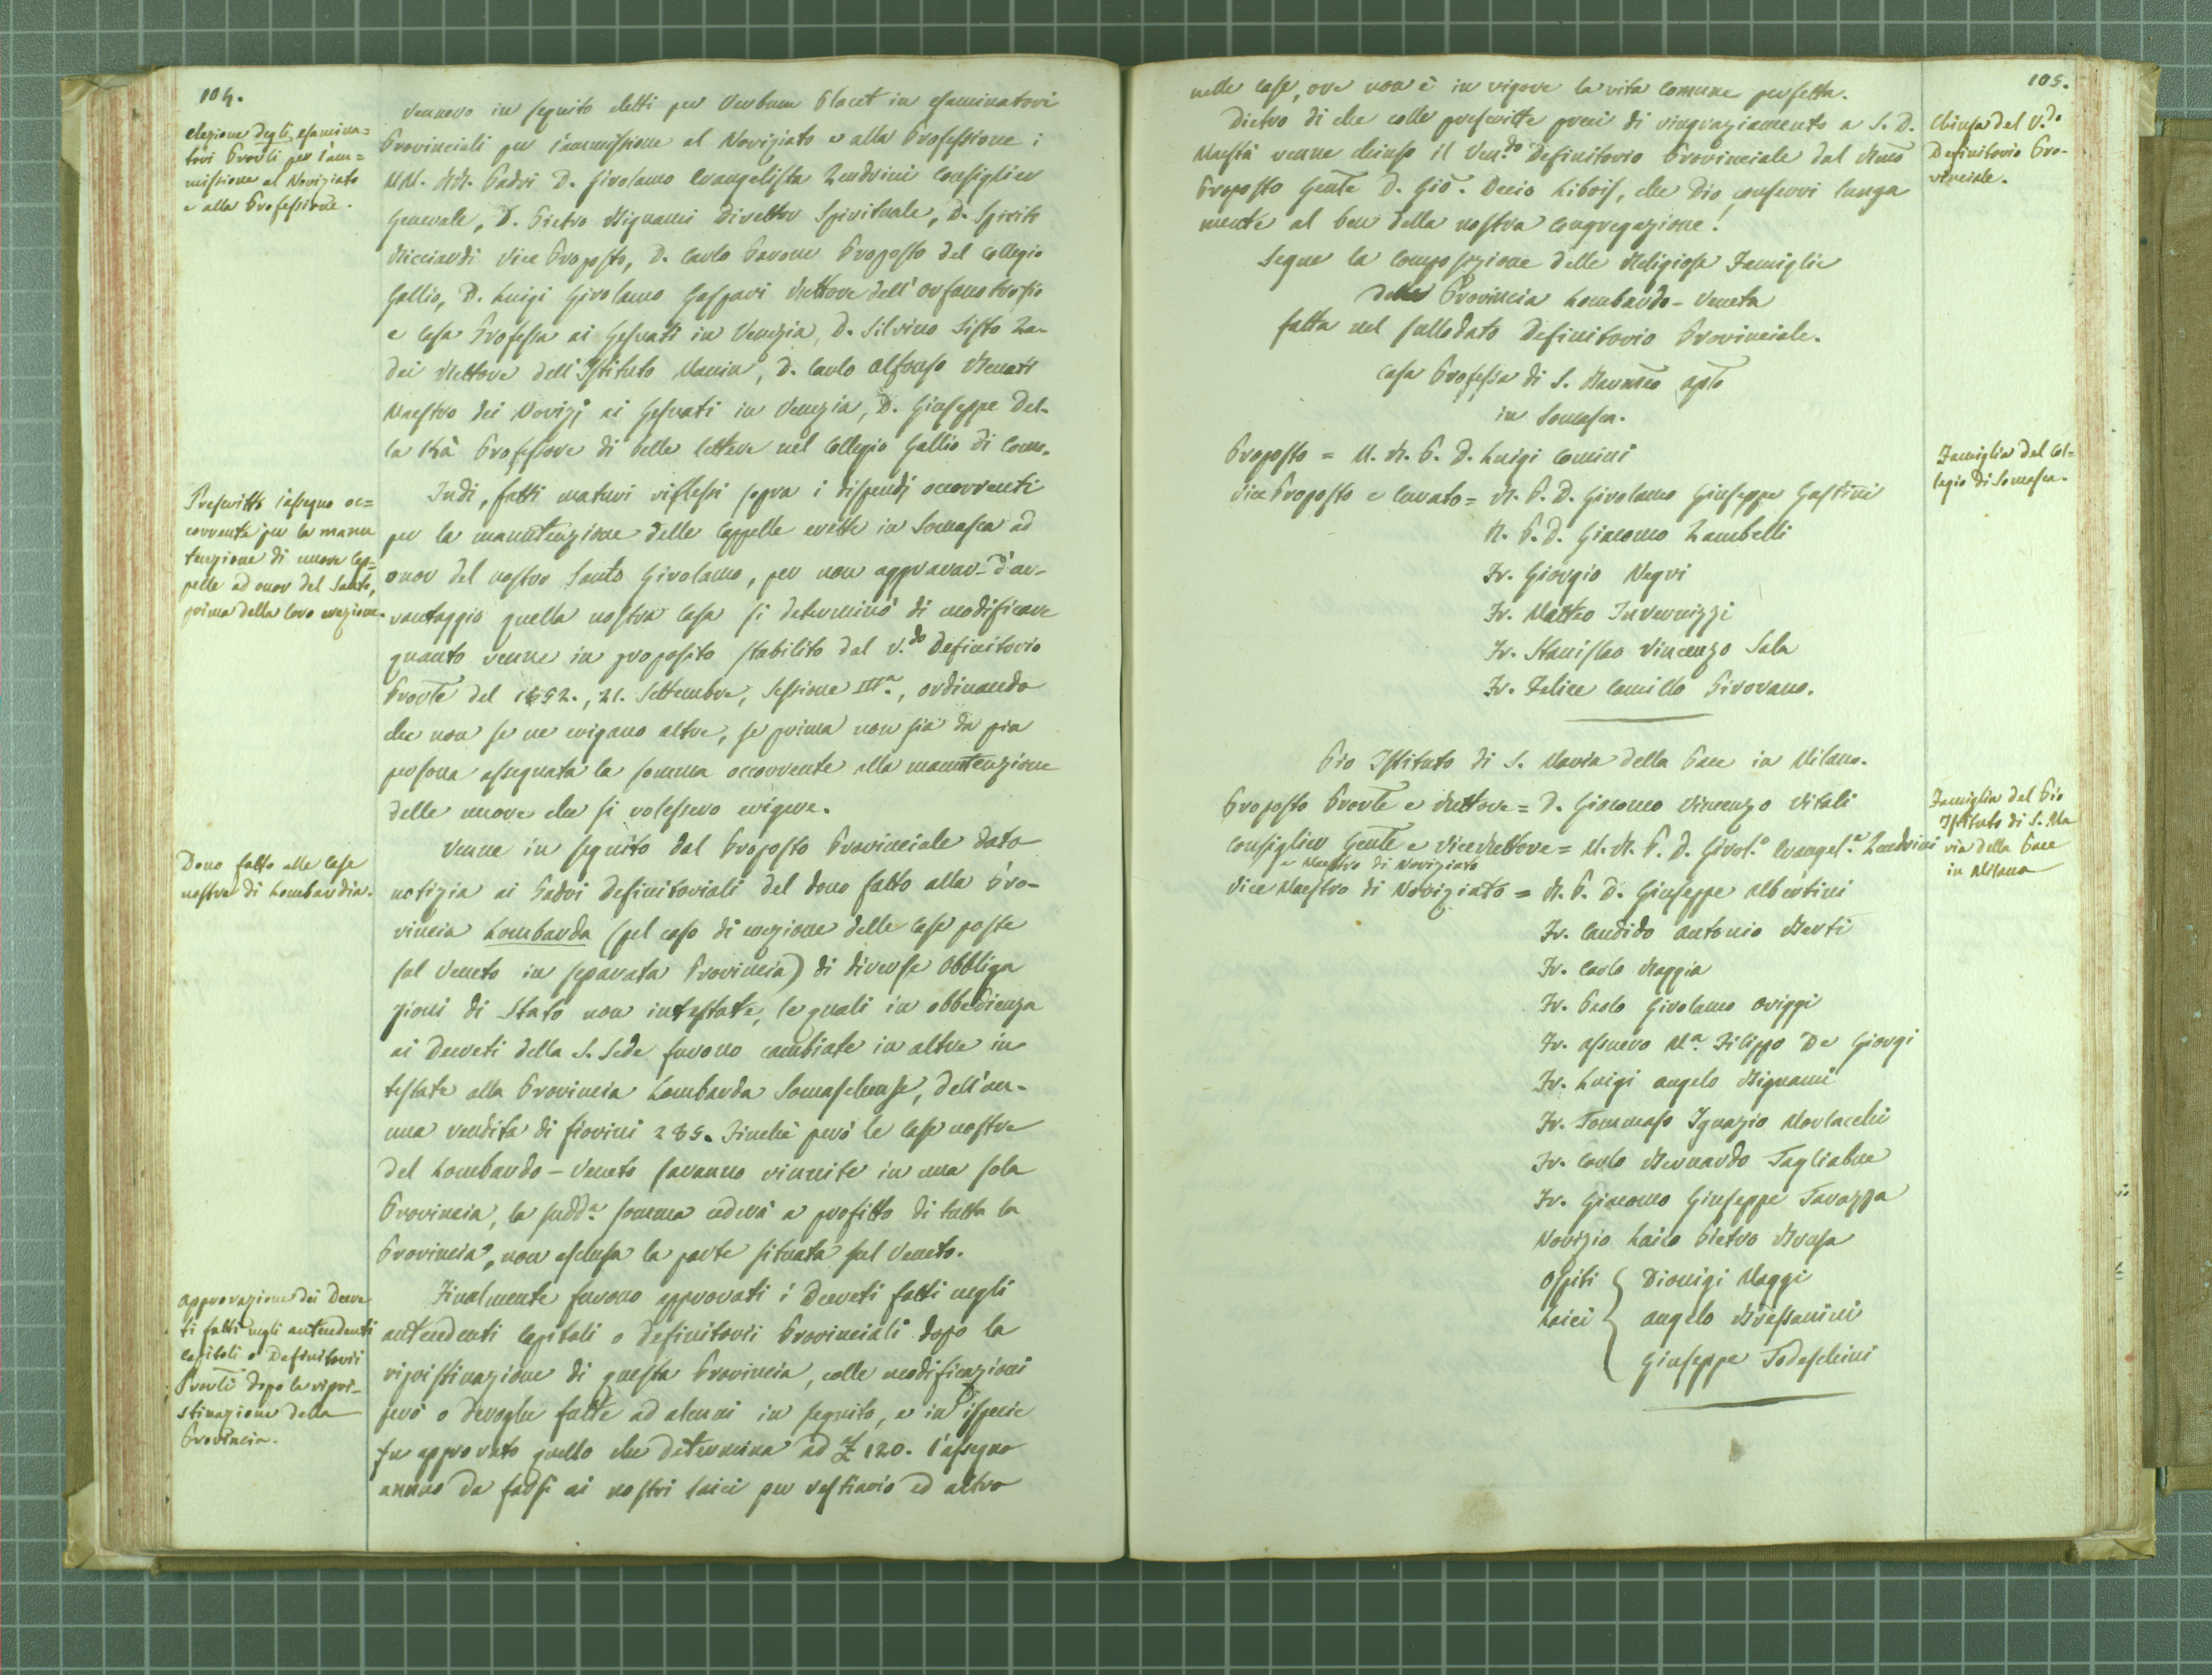 104.
Elezione degli esamina=
tori Prov̅li per l'am=
missione al Noviziato
e alla Professione.
Vennero in seguito eletti per Verbum Placet in esaminatori
Provinciali per l'ammissione al Noviziato e alla Professione i
MM. RR. Padri D. Girolamo Evangelista Zendrini Consiglier
Generale, D. Pietro Bignami Direttor Spirituale, D. Spirito
Ricciardi Vice Preposto, D. Carlo Parone Preposto del Collegio
Gallio, D. Luigi Girolamo Gaspari Rettore dell'Orfanotrofio
e Casa Professa ai Gesuati in Venezia, D. Silvino Sisto Za-
dei Rettore dell'Istituto Manin, D. Carlo Alfonso Benati
Maestro dei Novizj ai Gesuati in Venezia, D. Giuseppe Del-
la Kà Professore di belle lettere nel Collegio Gallio di Como.
Prescritto l'assegno oc=
corrente per la manu
tenzione di nuove Cap=
pelle ad onor del Santo,
prima della loro erezione.
Indi, fatti maturi riflessi sopra i dispendj occorrenti
per la manutenzione delle Cappelle erette in Somasca ad
onor del nostro Santo Girolamo, per non aggravar d'av-
vantaggio quella nostra Casa si determinò di modificare
quanto venne in proposito stabilito dal V.do Definitorio
Prov̅le del 1852., 21. Settembre, Sessione IIIa., ordinando
che non se ne erigano altre, se prima non sia da pia
persona assegnata la somma occorrente alla manutenzione
delle nuove che si volessero erigere.
Dono fatto alle Case
nostre di Lombardia.
Venne in seguito dal Preposto Provinciale dato
notizia ai Padri Definitoriali del dono fatto alla Pro-
vincia Lombarda (pel caso di erezione delle Case poste
sul Veneto in separata Provincia) di diverse Obbliga
zioni di Stato non intestate, le quali in obbedienza
ai Decreti della S. Sede furono cambiate in altre in-
testate alla Provincia Lombarda Somaschense, dell'an-
nua rendita di fiorini 285. Finchè però le Case nostre
del Lombardo-Veneto saranno riunite in una sola
Provincia, la sudda. somma cederà a profitto di tutta la
Provincia, non esclusa la parte situata sul Veneto.
Approvazione dei Decre
ti fatti negli antecedenti
Capitoli o Definitorii
Prov̅li dopo la ripri-
stinazione della
Provincia.
Finalmente furono approvati i Decreti fatti negli
antecedenti Capitoli o Definitorii Provinciali dopo la
ripristinazione di questa Provincia, colle modificazioni
però o deroghe fatte ad alcuni in seguito, e in ispecie
fu approvato quello che determina ad £ 120. l'assegno
annuo da farsi ai nostri laici per vestiario ed altro
105.
nelle Case, ove non è in vigore la vita comune perfetta.
Chiusa del V.do
Definitorio Pro-
vinciale.
Dietro di che colle prescritte preci di ringraziamento a S. D.
Maestà venne chiuso il Ven.do Definitorio Provinciale dal Rm̅o
Preposto Gen̅le D. Gio̅. Decio Libois, che Dio conservi lunga
mente al ben della nostra Congregazione!
Segue la composizione delle Religiose Famiglie
della Provincia Lombardo-Veneta
fatta nel sullodato Definitorio Provinciale.
Casa Professa di S. Bartm̅eo Ap̅lo
in Somasca.
Famiglia del Col=
legio di Somasca.
Preposto = M. R. P. D. Luigi Comini
Vice Preposto e Curato = R. P. D. Girolamo Giuseppe Gastini
R. P. D. Giacomo Zambelli
Fr. Giorgio Negri
Fr. Matteo Invernizzi
Fr. Stanislao Vincenzo Sala
Fr. Felice Camillo Pirovano.
Pio Istituto di S. Maria della Pace in Milano.
Famiglia del Pio
Istituto di S. Ma
ria della Pace
in Milano
Preposto Prov̅le e Rettore = D. Giacomo Vincenzo Vitali
Consiglier Gen̅le e Vicerettore = M. R. P. D. Girol.o Evangel.a Zendrini
e Maestro di Noviziato
Vice Maestro di Noviziato = R. P. D. Giuseppe Albertini
Fr. Candido Antonio Berti
Fr. Carlo Maggia
Fr. Paolo Girolamo Origgi
Fr. Assuero M.a Filippo De Giorgi
Fr. Luigi Angelo Bignami
Fr. Tommaso Ignazio Morlacchi
Fr. Carlo Bernardo Tagliabue
Fr. Giacomo Giuseppe Tavazza
Novizio Laico Pietro Brusa
Ospiti { Dionigi Maggi
Laici { Angelo Bressanini
Giuseppe Todeschini